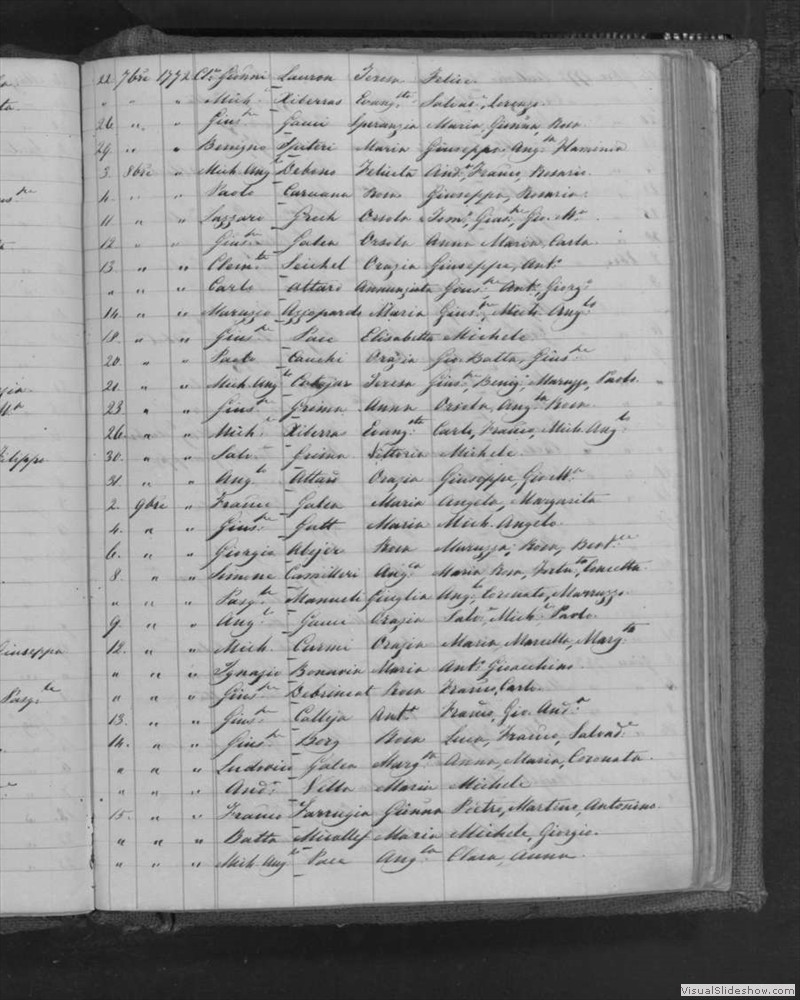 22 7bre 1772 Cl: Gionni Lauron Teresa Felice.
" " " Mich: Xiberras Evang:ta Salvat:, Lorenzo.
26 " " Gius:pe Gauci Speranzia Maria, Gionna, Rosa
29 " " Benigno Spiteri Maria Giuseppe Ang:ta Flaminia
3. 8bre " Mich. Ang:lo Debono Felicita And:a Franco, Rosario.
4. " " Paolo Caruana Rosa Giuseppe, Rosaria.
11. " " Lazzaro Grech Orsola Tom:o, Gius:pe, Gio. M:a
12. " " Gius:pe Galea Orsola Anna Maria, Carla.
13. " " Clem:te Seichel Orazia Giuseppe, Ant:o
" " " Carlo Attard Annunziata Gius:pe Ant:o, Giorg:o
14. " " Maruzzo Azzopardo Maria Gius:pe, Mich: Ang:lo
18. " " Gius:pe Pace Elisabetta Michele
20. " " Paolo Cauchi Orazia Gio Batta, Gius:pe
21. " " Mich. Ang:lo Teresa Gius:pe, Benig:, Maruzza, Paolo.
23. " " Gius:pe Grima Anna Orsola, Ang:la Rosa.
26. " " Mich: Xiberra Evang:ta Carlo, Franco, Mich. Ang:lo
30. " " Salv: Grima Vittoria Michele
31. " " Ang:lo Attard Orazia Giuseppe, Gio M:a
2. 9bre " Franco Galea Maria Angela, Margarita
4. " " Gius:pe Gatt Maria Mich. Angelo.
6. " " Giorgio Abejer Rosa Maruzza, Rosa, Beat:ce
8. " " Simone Camilleri Ang:la Maria Rosa, Concetta
" " " Pasq:le Manueli Giuglia Ang:lo Coronato, Maruzzo.
9. " " Ang:lo Gauci Orazia Salv:, Mich:, Paolo
12. " " Mich: Curmi Orazia Maria, Marcello, Marg:ta
" " " Ignazio Bonavia Maria Ant:o Gioacchino
" " " Gius:pe Debrincat Rosa Franco, Carlo.
13. " " Gius:pe Calleja Ant:a Franco, Gio. And:a
14. " " Gius:pe Borg Rosa Luca, Franco, Salvad:e
" " " Ludovico Galea Marg:ta Anna, Maria, Coronata.
" " " And:a Vella Maria Michele
15. " " Franco Farrugia Gionna Pietro, Martino, Antonino.
" " " Batta Micallef Maria Michele, Giorgio.
" " " Mich. Ang:lo Pace Ang:la Clara, Anna.
Filippo
Giuseppa
Pasq:le
VisualSlideshow.com